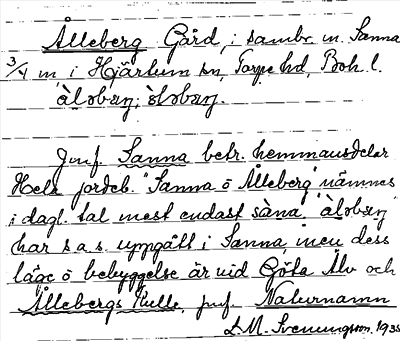 Ålleberg Gård, i sambr. m. Sanna
3/4 m i Hjärtum sn, Torpe hd, Boh. l.
àlobæɲ; òlobæɲ.
Jmf. Sanna betr. hemmansdelar
Hela jordeb. "Sanna o Ålleberg" nämnes
i dagl. tal mest endast sàna. "àlobæɲ"
har s.a.s. uppgått i Sanna, men dess
läge o bebyggelse är vid Göta Älv och
Ållebergs Kulle, jmf. Naturnamn
L.M. Svenungsson. 1935